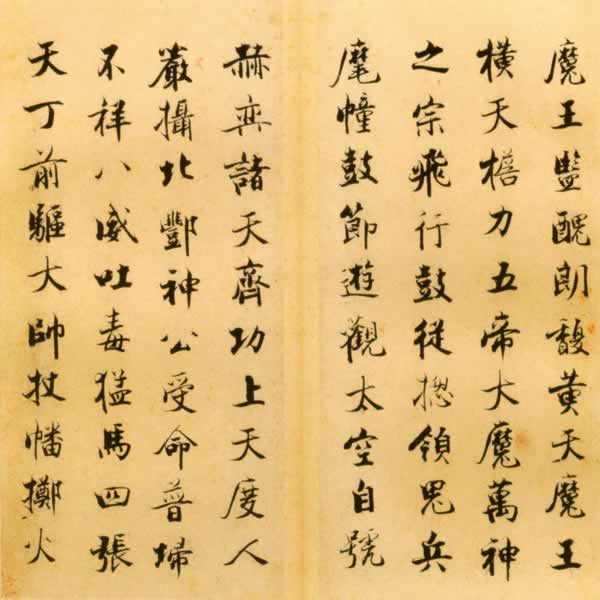 魔王監醜朗馥黃天魔王
橫天檐力五帝大魔萬神
之宗飛行鼓從揔領鬼兵
麾幢鼓節遊觀太空自號
赫奕諸天齊功上天度人
嚴攝北酆神公受命普掃
不祥八威吐毒猛馬四張
天丁前驅大帥杖幡擲火